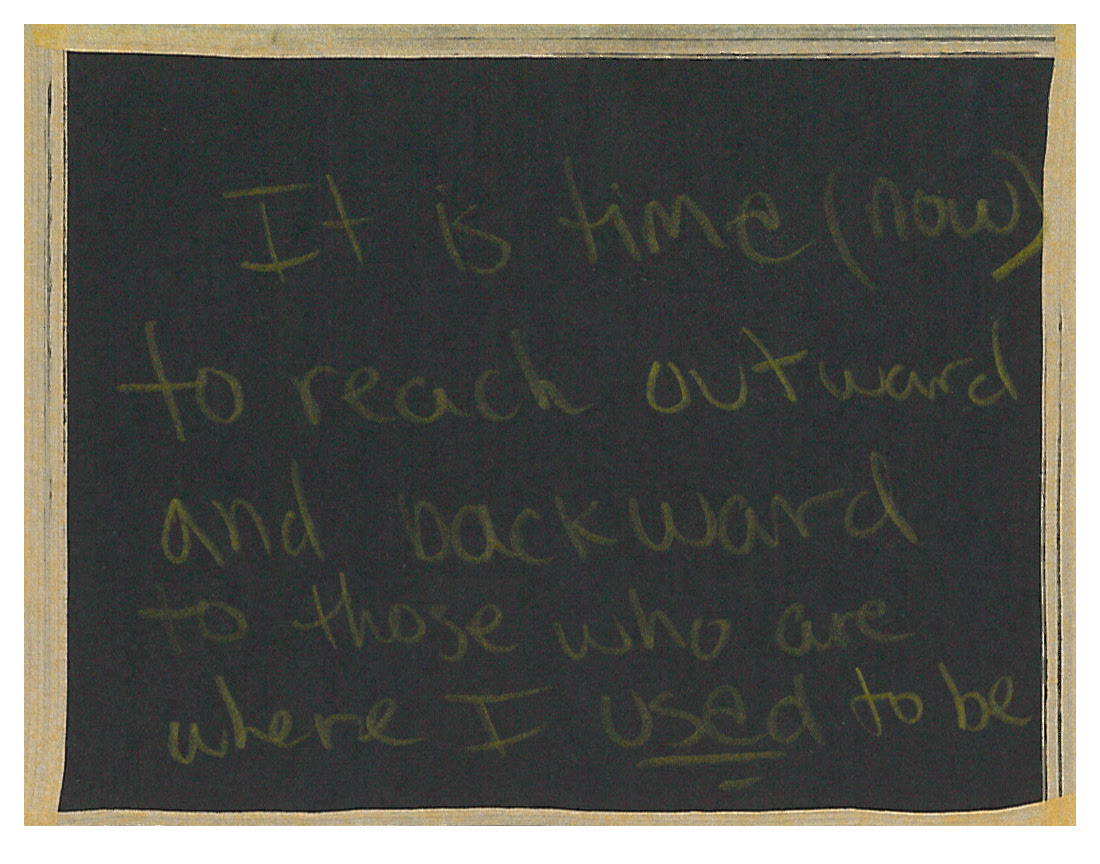 It is time (now)
to reach outward
and backward
to those who are
where I used to be